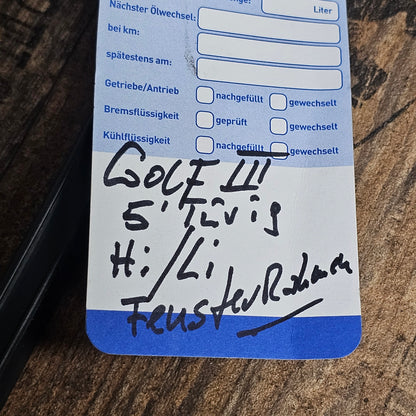 Nächster Ölwechsel:
Liter
bei km:
spätestens am:
Getriebe/Antrieb nachgefüllt gewechselt
Bremsflüssigkeit geprüft gewechselt
Kühlflüssigkeit nachgefüllt gewechselt
GOLF III
5' Türig
Hi/Li
FensterRahmen